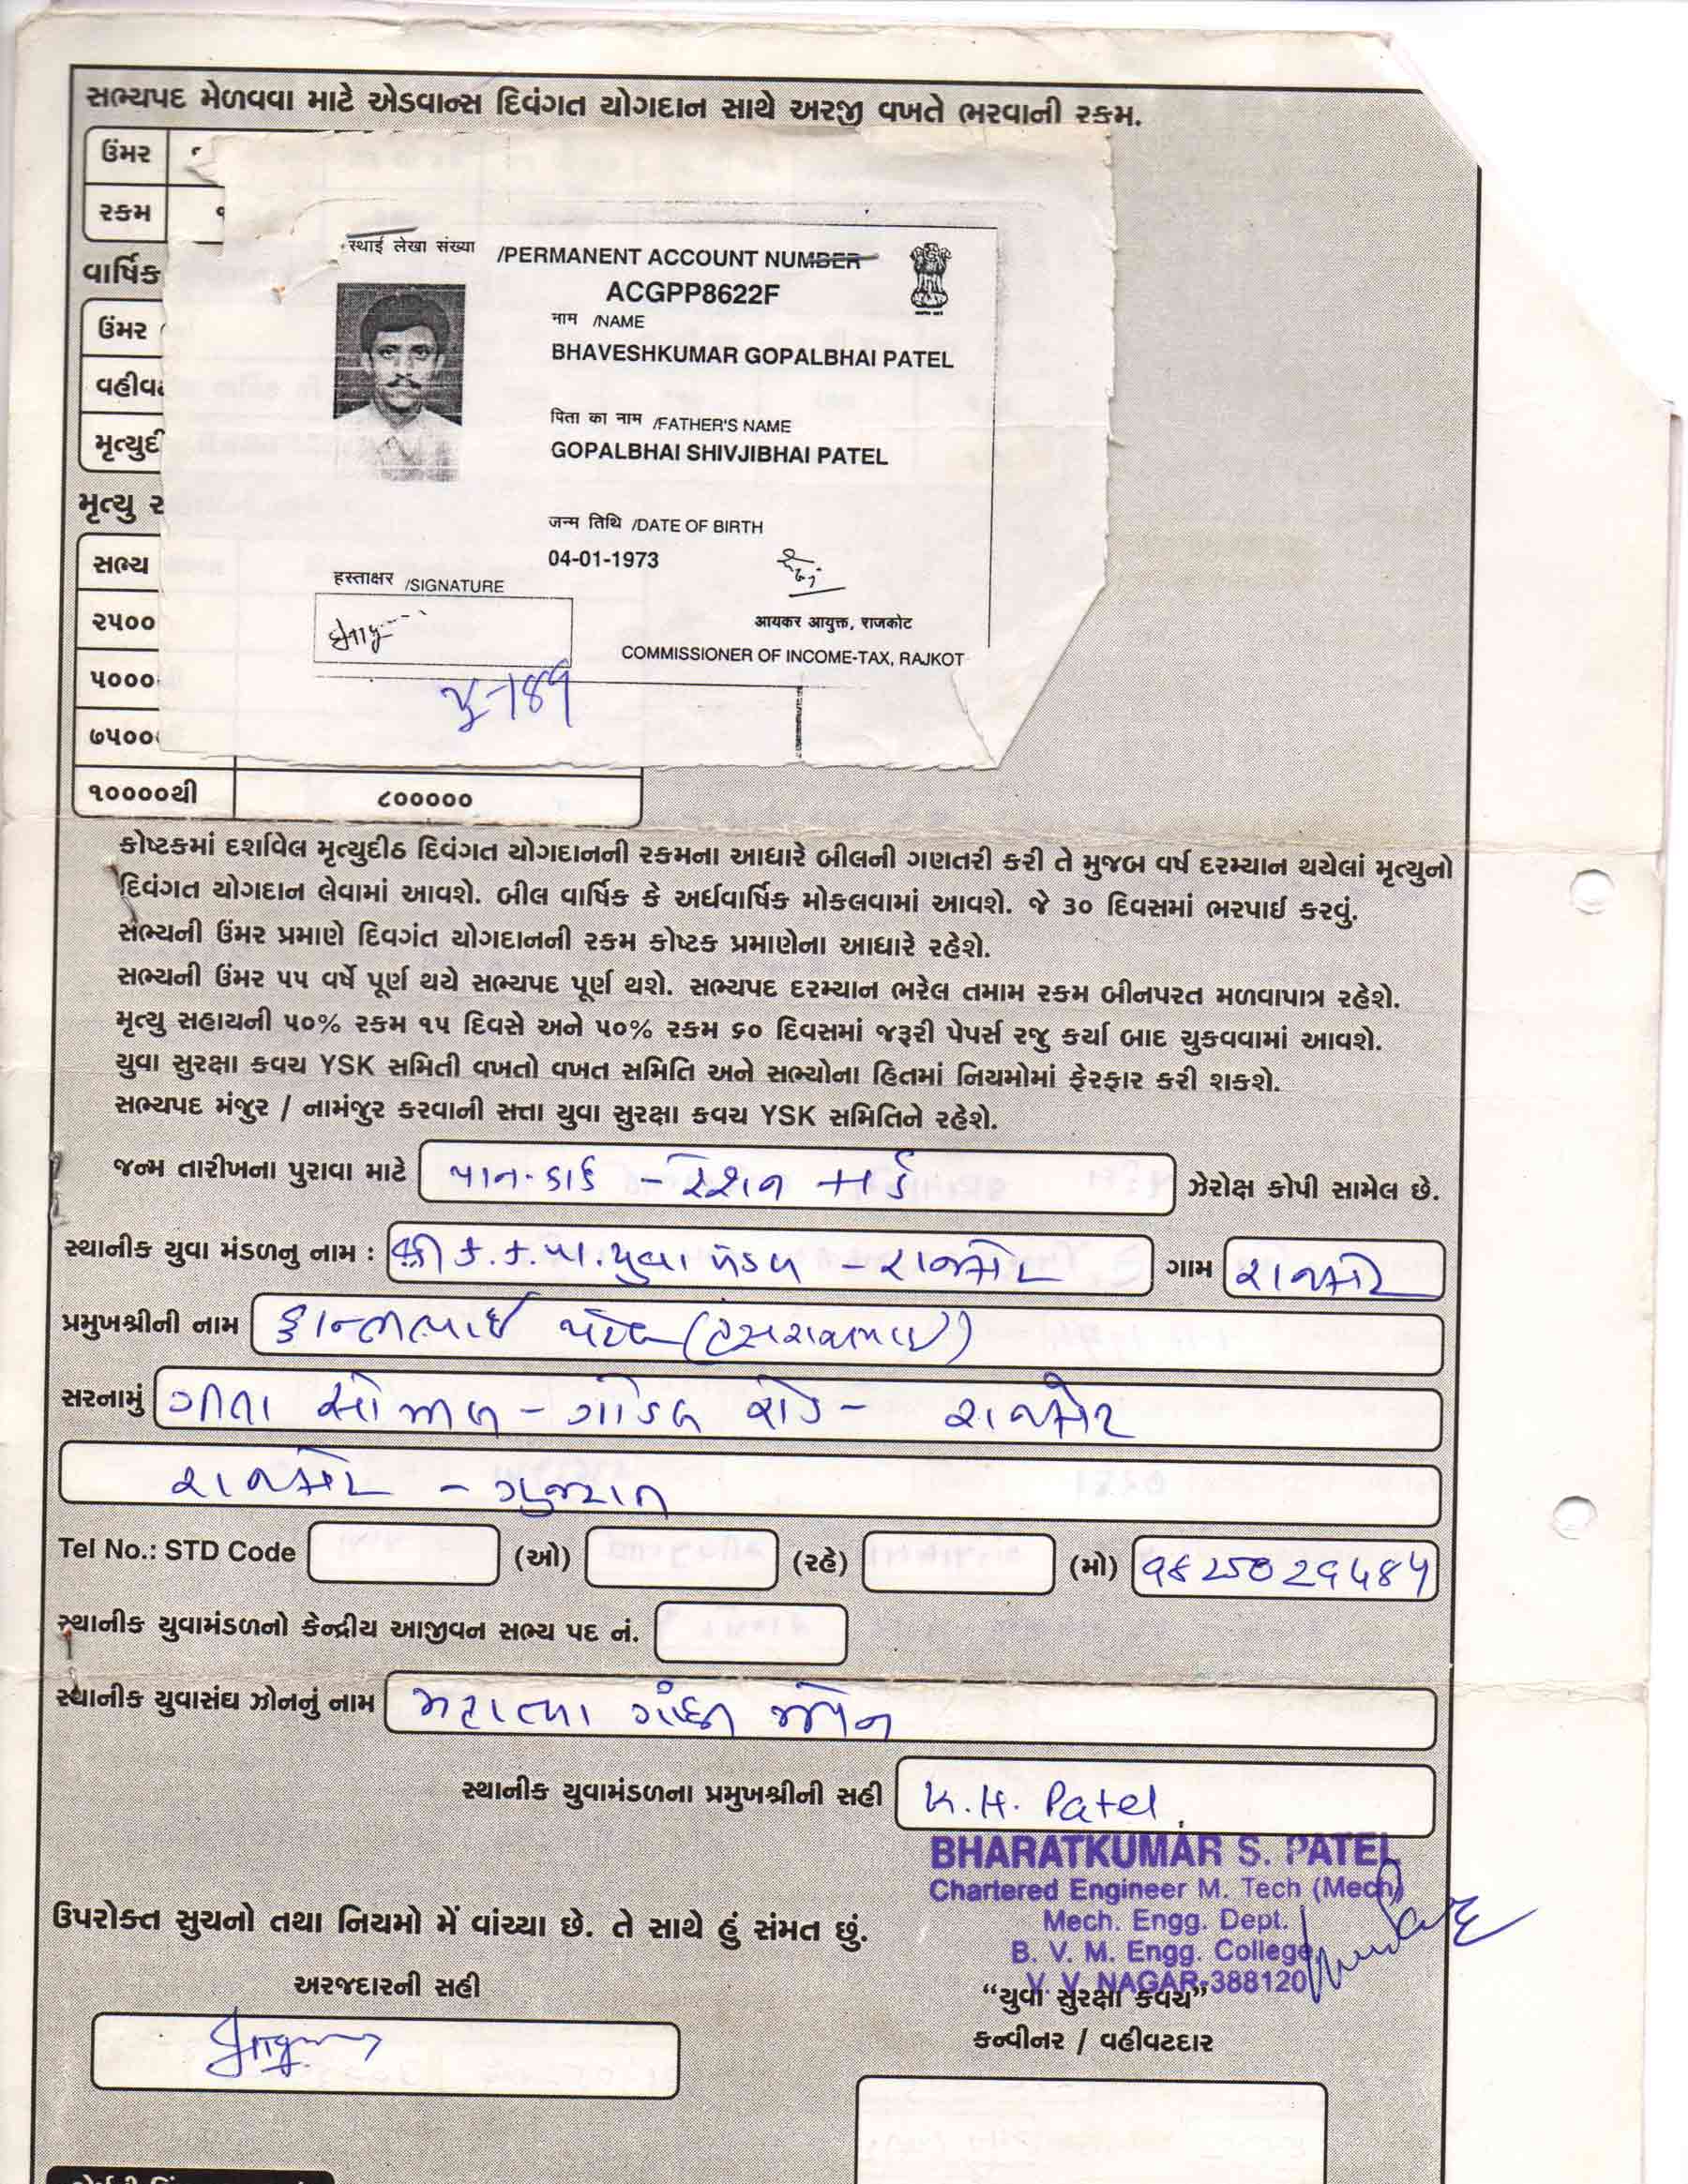 સભ્યપદ મેળવવા માટે એડવાન્સ દિવંગત યોગદાન સાથે અરજી વખતે ભરવાની રકમ.
ઉંમર
રકમ
વાર્ષિક
ઉંમર
વહીવટ
મૃત્યુદી
મૃત્યુ ર
સભ્ય
૨૫૦૦
૫૦૦૦
૭૫૦૦
૧૦૦૦૦થી ૮૦૦૦૦૦
स्थाई लेखा संख्या /PERMANENT ACCOUNT NUMBER
ACGPP8622F
नाम /NAME
BHAVESHKUMAR GOPALBHAI PATEL
पिता का नाम /FATHER'S NAME
GOPALBHAI SHIVJIBHAI PATEL
जन्म तिथि /DATE OF BIRTH
04-01-1973
हस्ताक्षर /SIGNATURE
आयकर आयुक्त, राजकोट
COMMISSIONER OF INCOME-TAX, RAJKOT
કોષ્ટકમાં દર્શાવેલ મૃત્યુદીઠ દિવંગત યોગદાનની રકમના આધારે બીલની ગણતરી કરી તે મુજબ વર્ષ દરમ્યાન થયેલાં મૃત્યુનો
દિવંગત યોગદાન લેવામાં આવશે. બીલ વાર્ષિક કે અર્ધવાર્ષિક મોકલવામાં આવશે. જે ૩૦ દિવસમાં ભરપાઈ કરવું.
સભ્યની ઉંમર પ્રમાણે દિવગંત યોગદાનની રકમ કોષ્ટક પ્રમાણેના આધારે રહેશે.
સભ્યની ઉંમર ૫૫ વર્ષે પૂર્ણ થયે સભ્યપદ પૂર્ણ થશે. સભ્યપદ દરમ્યાન ભરેલ તમામ રકમ બીનપરત મળવાપાત્ર રહેશે.
મૃત્યુ સહાયની ૫૦% રકમ ૧૫ દિવસે અને ૫૦% રકમ ૬૦ દિવસમાં જરૂરી પેપર્સ રજુ કર્યા બાદ ચુકવવામાં આવશે.
યુવા સુરક્ષા કવચ YSK સમિતી વખતો વખત સમિતિ અને સભ્યોના હિતમાં નિયમોમાં ફેરફાર કરી શકશે.
સભ્યપદ મંજુર / નામંજુર કરવાની સત્તા યુવા સુરક્ષા કવચ YSK સમિતિને રહેશે.
જન્મ તારીખના પુરાવા માટે પાન-કાર્ડ - રેશન કાર્ડ ઝેરોક્ષ કોપી સામેલ છે.
સ્થાનીક યુવા મંડળનુ નામ : શ્રી ક.ક.પા.યુવા મંડળ - રાજકોટ ગામ રાજકોટ
પ્રમુખશ્રીની નામ પટેલ
સરનામું ગીતા - ગોંડલ રોડ - રાજકોટ
રાજકોટ - ગુજરાત
Tel No.: STD Code (ઓ) (રહે) (મો)
સ્થાનીક યુવામંડળનો કેન્દ્રીય આજીવન સભ્ય પદ નં.
સ્થાનીક યુવાસંઘ ઝોનનું નામ મહાત્મા ગાંધી ઝોન
સ્થાનીક યુવામંડળના પ્રમુખશ્રીની સહી K.H. Patel
BHARATKUMAR S. PATEL
Chartered Engineer M. Tech (Mech)
Mech. Engg. Dept.
B. V. M. Engg. College
V. V. NAGAR-388120
ઉપરોક્ત સુચનો તથા નિયમો મેં વાંચ્યા છે. તે સાથે હું સંમત છું.
અરજદારની સહી
“યુવા સુરક્ષા કવચ”
કન્વીનર / વહીવટદાર